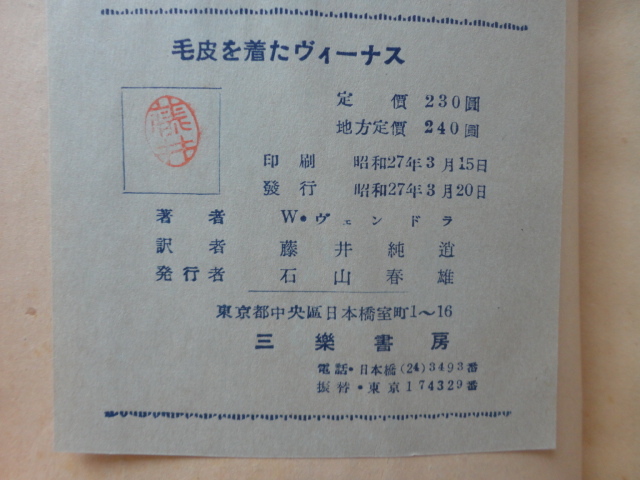 毛皮を着たヴィーナス
定價 230圓
地方定價 240圓
印刷 昭和27年3月15日
發行 昭和27年3月20日
著者 W・ヴェンドラ
訳者 藤井純逍
発行者 石山春雄
東京都中央區日本橋室町1～16
三樂書房
電話・日本橋(24)3493番
振替・東京174329番